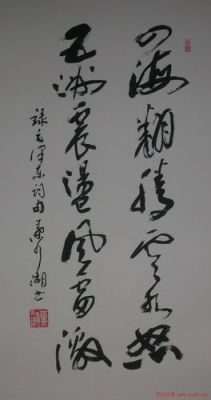 四海翻腾云水怒
五洲震盪风雷激
录毛泽东词句